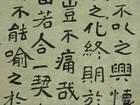 不以之興懷
化終期於
豈不痛哉
由若合一契
不能喻之於